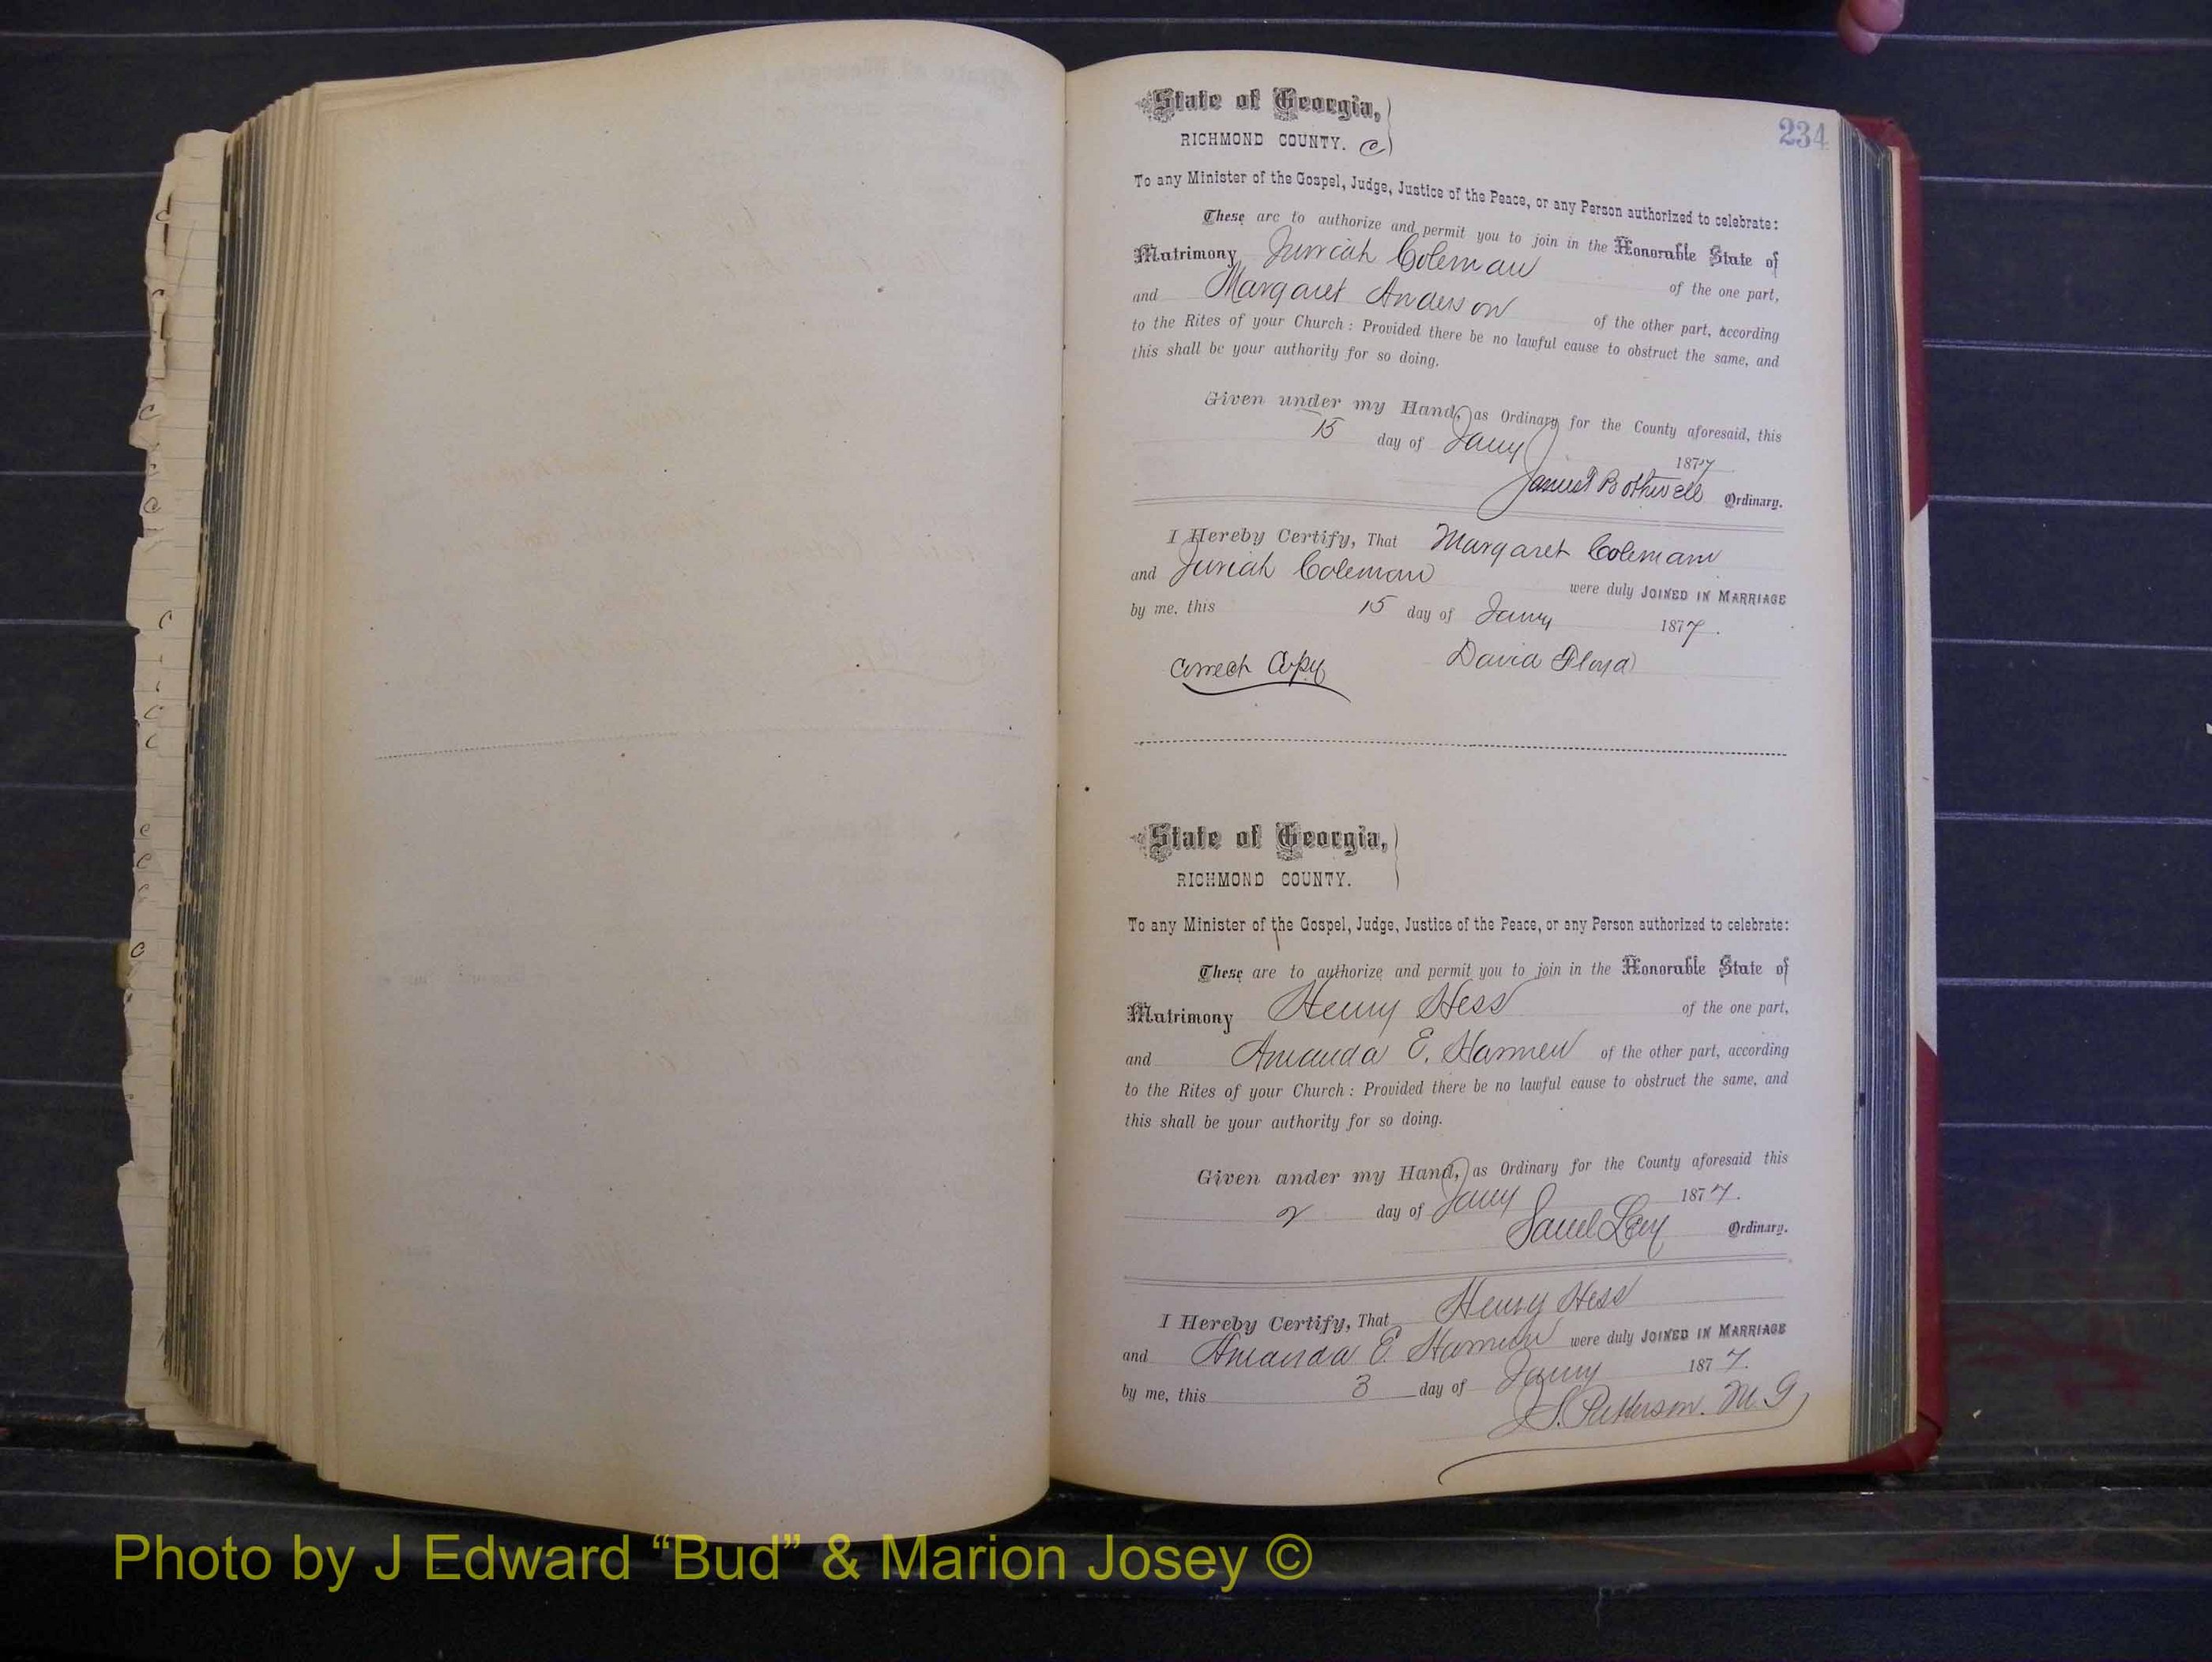 234
State of Georgia,
RICHMOND COUNTY. C
To any Minister of the Gospel, Judge, Justice of the Peace, or any Person authorized to celebrate:
These are to authorize and permit you to join in the Honorable State of
Matrimony Juriah Coleman of the one part,
and Margaret Anderson of the other part, according
to the Rites of your Church: Provided there be no lawful cause to obstruct the same, and
this shall be your authority for so doing.
Given under my Hand, as Ordinary for the County aforesaid, this
15 day of Jany 1877
Bothwell Ordinary.
I Hereby Certify, That Margaret Colemann
and Juriah Coleman were duly JOINED IN MARRIAGE
by me, this 15 day of Jany 1877.
Correct Copy David Floyd
State of Georgia,
RICHMOND COUNTY.
To any Minister of the Gospel, Judge, Justice of the Peace, or any Person authorized to celebrate:
These are to authorize and permit you to join in the Honorable State of
Matrimony Henry Hess of the one part,
and Amanda E. of the other part, according
to the Rites of your Church: Provided there be no lawful cause to obstruct the same, and
this shall be your authority for so doing.
Given under my Hand, as Ordinary for the County aforesaid this
2 day of Jany 1877.
Samel Levy Ordinary.
I Hereby Certify, That Henry Hess
and Amanda E. were duly JOINED IN MARRIAGE
by me, this 3 day of Jany 1877.
J S. Patterson. M. G
Photo by J Edward “Bud” & Marion Josey ©